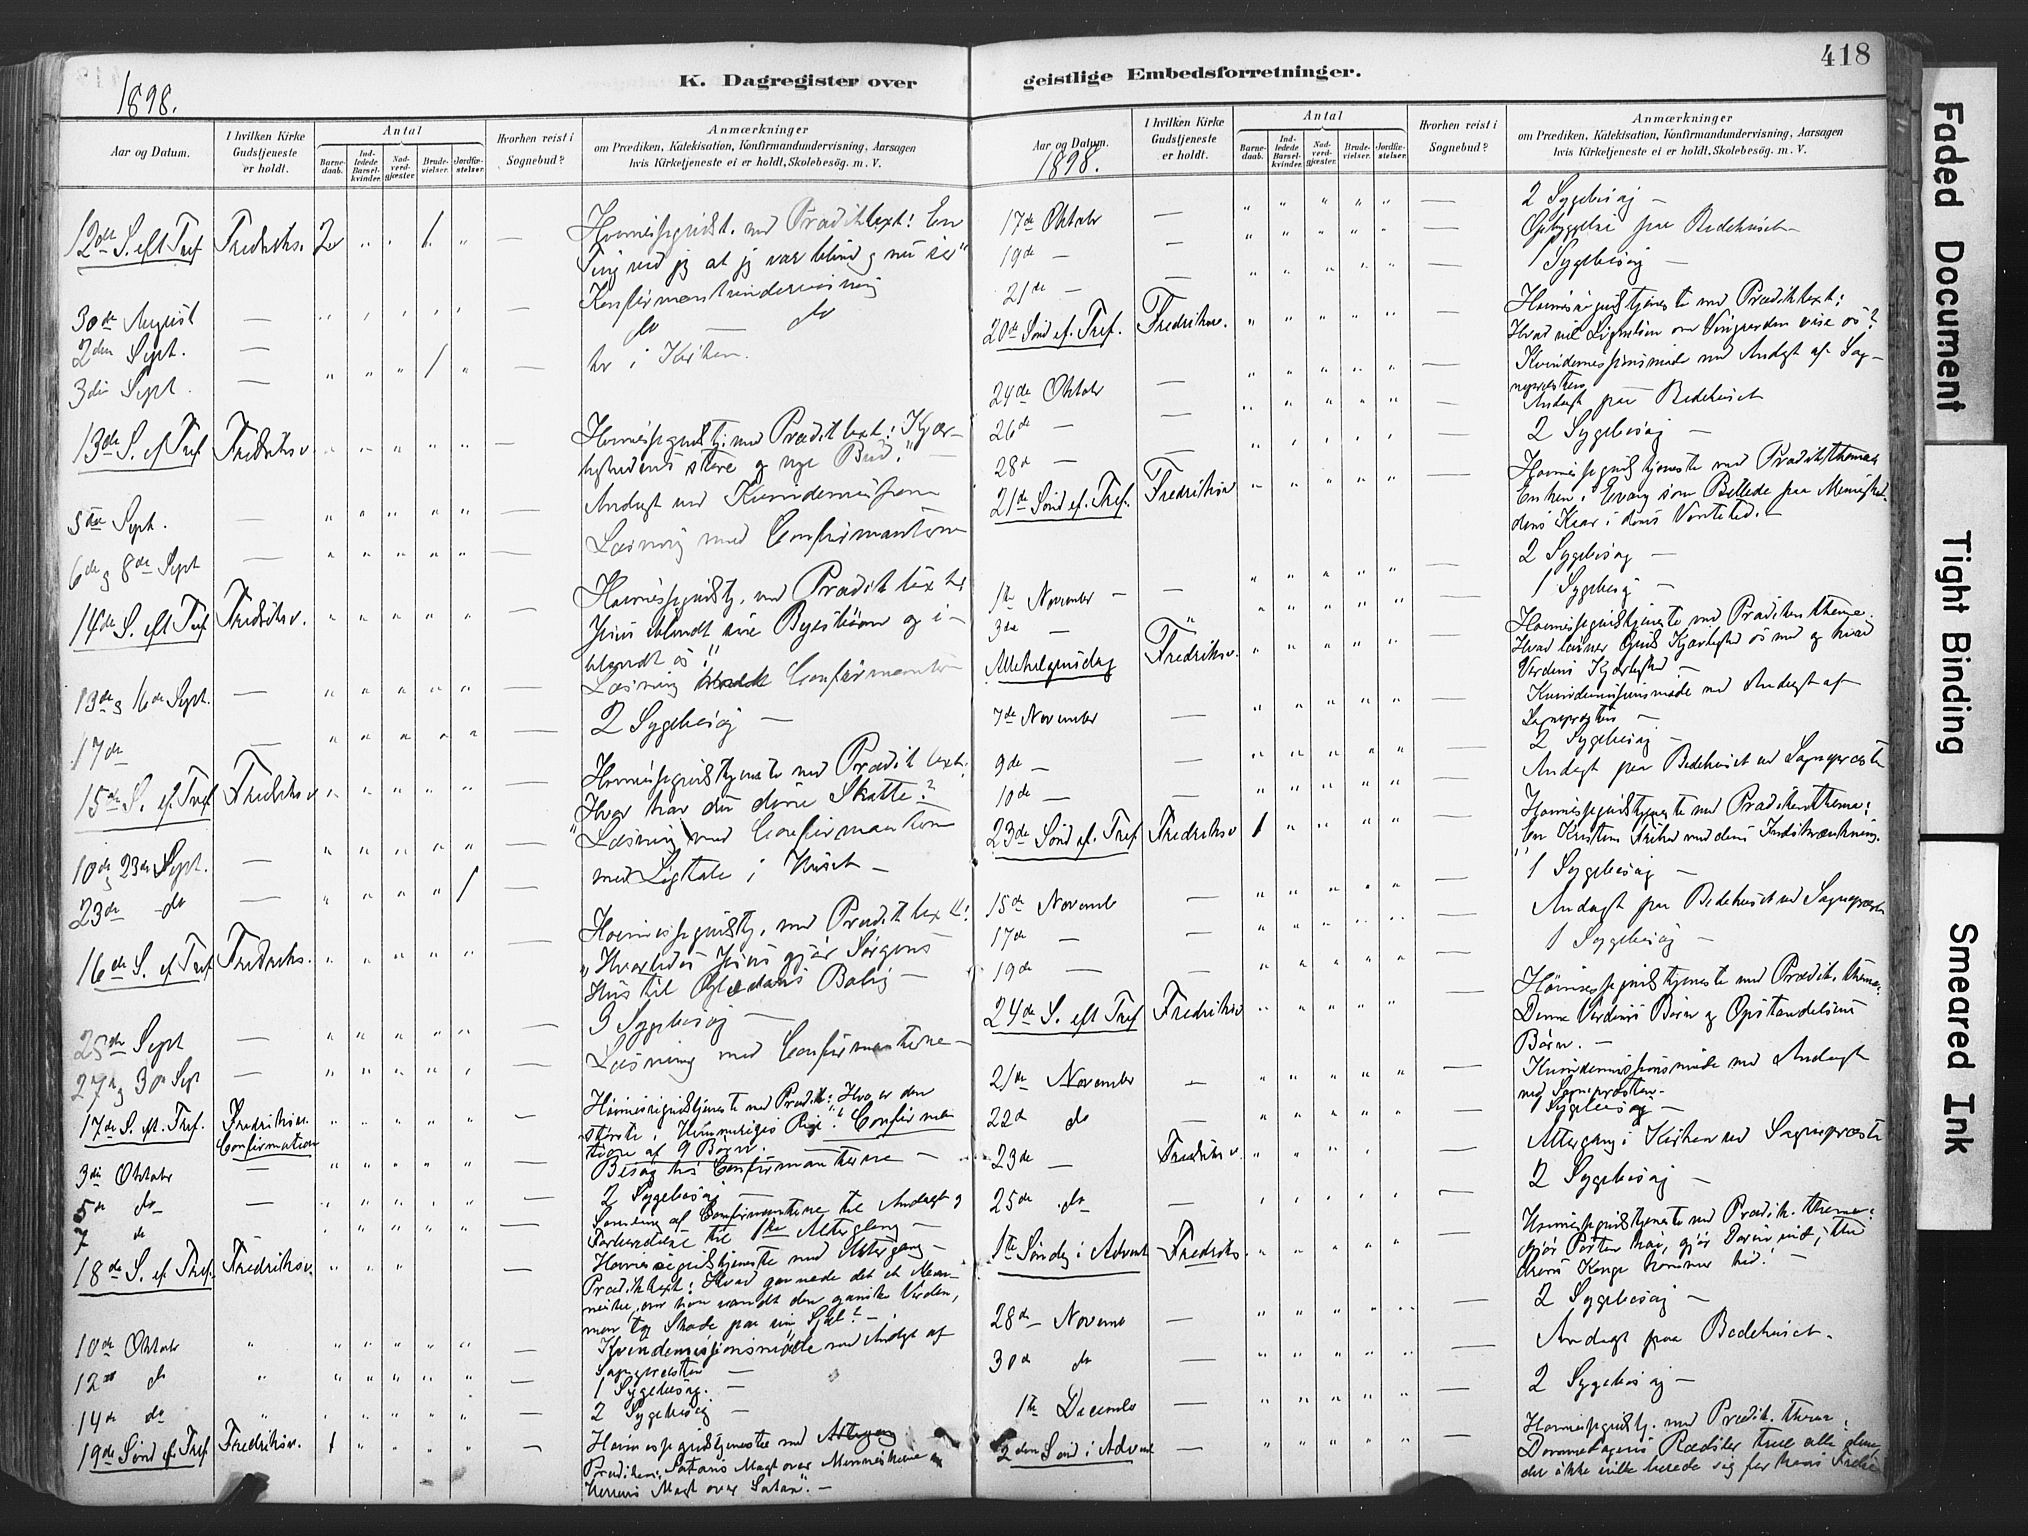 418
K. Dagregister over geistlige Embedsforretninger.
1898.
Aar og Datum.
I hvilken Kirke Gudstjeneste er holdt.
Antal
Barnedaab.
Indledede Barselkvinder.
Nadverdgjæster.
Brudevielser.
Jordfæstelser.
Hvorhen reist i Sognebud?
Anmærkninger
om Prædiken, Katekisation, Konfirmandundervisning, Aarsagen
hvis Kirketjeneste ei er holdt, Skolebesög. m. V.
12de S. eft Tref Fredriks. 2 Høimessegudst. med Prædiktext: En
Ting ved jeg at jeg var blind og nu ser"
30de August — Konfirmantundervisning
2den Sept. — do — do
3die Sept. — do i Kirken.
13de S. ef Tref Fredriksv. Høimessegudstj. med Prædiktext: Kjær-
lighedens store og nye Bud." —
5te Sept. — Andagt ved Kvindemissionen
6de og 8de Sept — Læsning med Confirmanterne
14de S. eft Tref Fredriksv. Høimessegudstj. med Prædiktext
Jesus blandt sine Bysbørn og i-
blandt os."
13de og 16de Sept. — Læsning Confirmanterne
17de — 2 Sygebesøg —
15de S. ef. Tref Fredriksv Høimessegudstjeneste med Prædiktext:
Hvor har du dine Skatte?
23de Sept. — Læsning med Confirmanterne
23de do — med Ligtale i Huset —
16de S. ef Tref Fredriks. Høimessegudstj. med Prædiktext:
"Hvorledes Jesus gjør Sorgens
Hus til Glædens Bolig —
25de Sept — 3 Sygebesøg —
27de og 30te Sept — Læsning med Confirmanterne —
17de S. eft. Tref. Fredriksv. Confirmation Høimessegudstjeneste med Prædik: Hvo er den
største i Himmeriges Rige"? Confirma-
tion af 9 Børn. —
3die Oktober — Besøg hos Confirmanterne —
5te do — 2 Sygebesøg —
7 do Samling af Confirmanterne til Andagt og
Forberedelse til 1ste Altergang —
18de S. ef. Tref. Fredriksv. Høimessegudstjeneste med Altergang —
Prædiktext: Hvad gavnede det et Men-
neske, om han vandt den ganske Verden,
men tog Skade paa sin Sjel? —
10de Oktober " Kvindemissionsmøde med Andagt af
Sognepræsten —
12te do " 1 Sygebesøg. —
14de do " 2 Sygebesøg —
19de Sønd ef. Tref Fredriksv. 1 Høimessegudstjeneste med Altergang
Prædiken: Satans Magt over Menneskene og
Herrens Magt over Satan". —
Aar og Datum.
1898.
I hvilken Kirke Gudstjeneste er holdt.
Antal
Barnedaab.
Indledede Barselkvinder.
Nadverdgjæster.
Brudevielser.
Jordfæstelser.
Hvorhen reist i Sognebud?
Anmærkninger
om Prædiken, Katekisation, Konfirmandundervisning, Aarsagen
hvis Kirketjeneste ei er holdt, Skolebesög. m. V.
17de Oktober — 2 Sygebesøg —
19de — — Opbyggelse paa Bedehuset —
21de — — 1 Sygebesøg —
20de Sønd ef. Tref. Fredriksv. Høimessegudstjeneste med Prædiktext:
Hvad vil Lignelsen om Vingaarden vise os?
24de Oktober — Kvindemissionsmøde med Andagt af Sog-
nepræsten
26de — — Andagt paa Bedehuset
28de — — 2 Sygebesøg —
21de Sønd ef. Tref. Fredriksv Høimessegudstjeneste med Prædikthema:
som Billede paa Menighe-
dens Kaar i dens Ventetid. —
2 Sygebesøg —
1ste November — — 1 Sygebesøg —
3die — "
Allehelgensdag Fredriksv. Høimessegudstjeneste med Prædikenthema:
Hvad lærer Guds Kjærlighed os med og hvad
Verdens Kjærlighed —
7de November — Kvindemissionsmøde med Andagt af
Sognepræsten —
9de — — 2 Sygebesøg —
10de — — Andagt paa Bedehuset ved Sognepræsten
23de Sønd ef. Tref Fredriksv 1 Høimessegudstjeneste med Prædikenthema:
"En Kristens Frihed med dens Indskrænkning."
15de November — 1 Sygebesøg —
17de — — Andagt paa Bedehuset ved Sognepræsten
19de — — 1 Sygebesøg —
24de S. eft Tref Fredriksv Høimessegudstjeneste med Prædik. thema:
Denne Verdens Børn og Opstandelsens
Børn. —
21de November — Kvindemissionsmøde med Andagt
ved Sognepræsten.
22de do — 1 Sygebesøg —
23de — Fredriksv. Altergang i Kirken ved Sognepræsten
25de do — 2 Sygebesøg —
1ste Søndag i Advent Fredriks. Høimessegudstjeneste med Prædik. thema:
Gjør Porten høi, gjør Døren vid, thi
Ærens Konge kommer hid! —
28de Novemb — 2 Sygebesøg —
30de do — Andagt paa Bedehuset.
1ste Decemb — 2 Sygebesøg —
2den Sønd i Advent — Høimessegudstj. med Prædik. thema:
Dommedagens Rædsler true alle dem
der ikke ville berede sig
Faded Document
Tight Binding
Smeared Ink